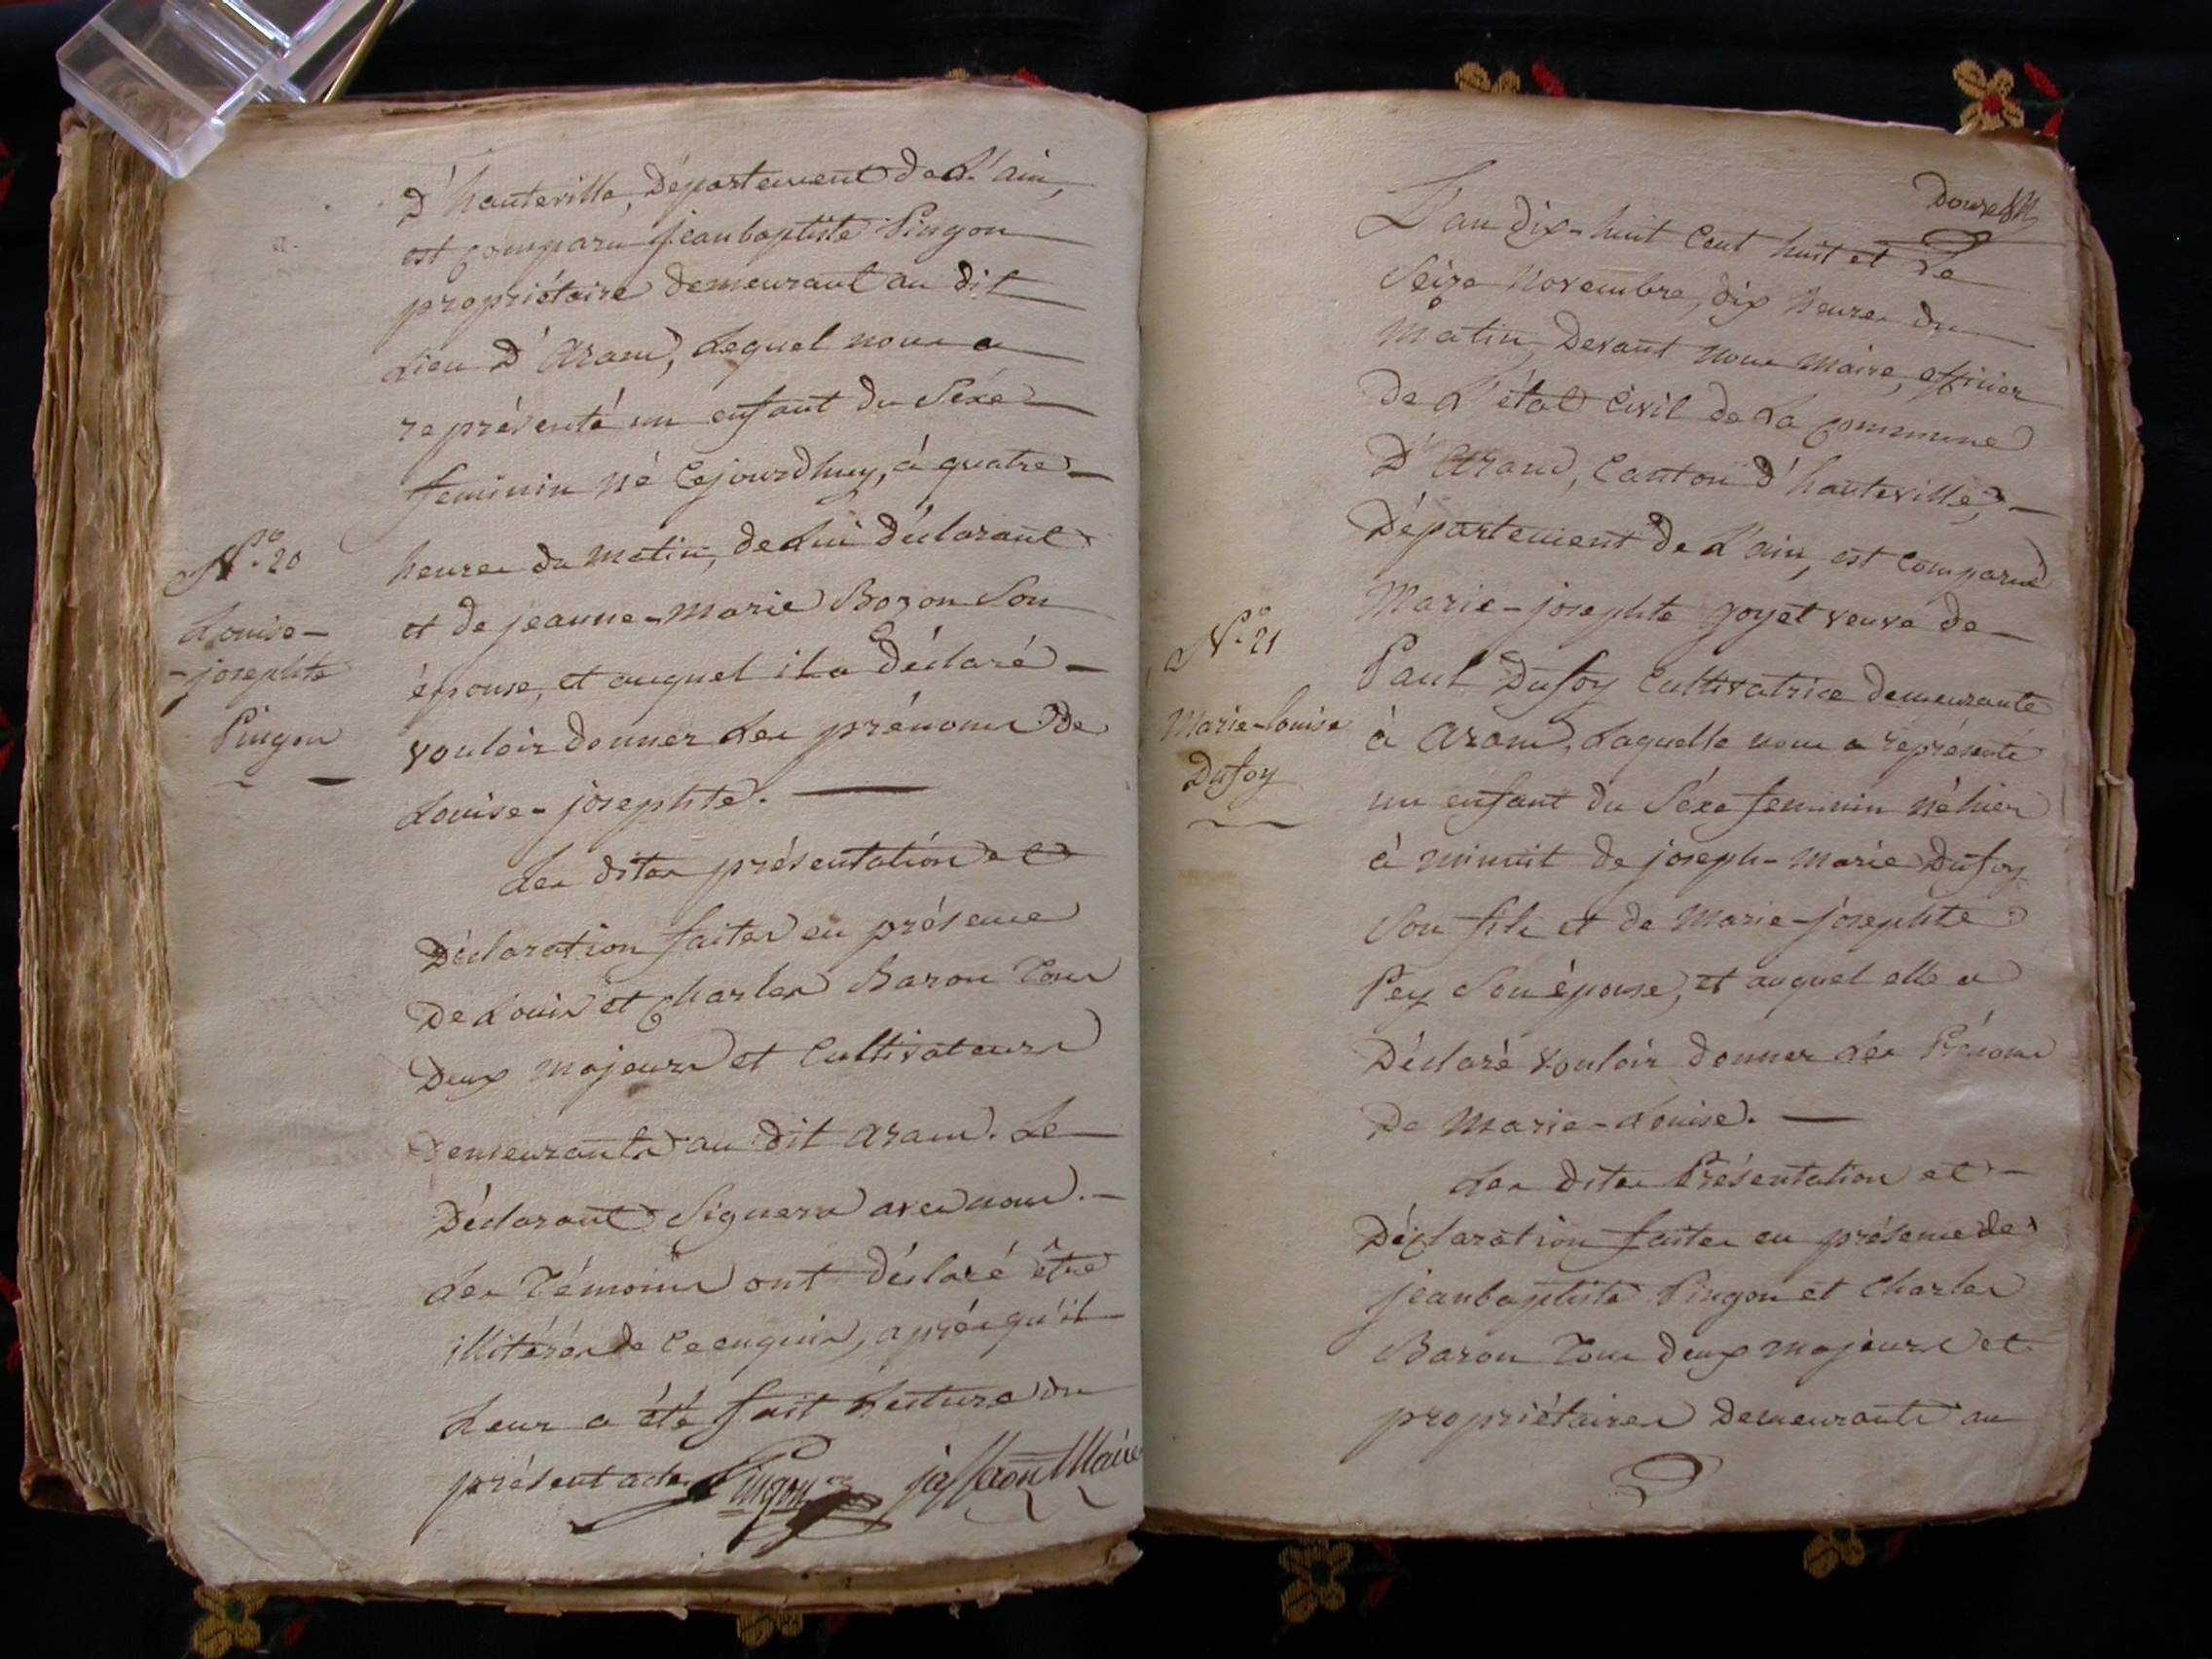 D'hauteville, Département de L'ain,
est comparu jeanbaptiste Pingon
propriétaire demeurant au dit
Lieu D'Aranc, Lequel nous a
représenté un enfant du Séxe
feminin né Cejourdhuy, à quatre
heures du matin, de Lui Déclarant
et de jeanne-Marie Bozon Son
épouse, et auquel il a Déclaré
vouloir donner Les prénoms de
Louise-josephte.
Les dites présentation et
Déclaration faites en présence
De Louis et Charles Baron Tous
Deux majeurs et Cultivateurs
Demeurants au dit Aranc. Le
Déclarant Signera avec nous.
Les Témoins ont déclaré être
illitérés de ce enquis, après qu'il
Leur a été fait Lecture du
présent acte. Pingon Maire
N.o 20
Louise-
-josephte
Pingon
Douze
L'an dix-huit Cent huit et Le
Seize Novembre, dix heures du
Matin, Devant nous Maire, officier
De L'état Civil de La Commune
D'Aranc, Canton d'hauteville,
Département De L'ain, est Comparue
Marie-josephte goyet veuve de
Paul Dufoy Cultivatrice demeurante
à Aranc, Laquelle nous a représenté
un enfant du Séxe feminin né hier
à minuit de joseph-Marie Dufoy
Son fils et de Marie-josephte
Pey Son épouse, et auquel elle a
Déclaré vouloir donner Les Prénoms
De Marie-Louise.
Les dites Présentation et
Déclaration faites en présence de
jeanbaptiste Pingon et Charles
Baron Tous deux majeurs et
propriétaires Demeurants au
N.o 21
Marie-Louise
Dufoy